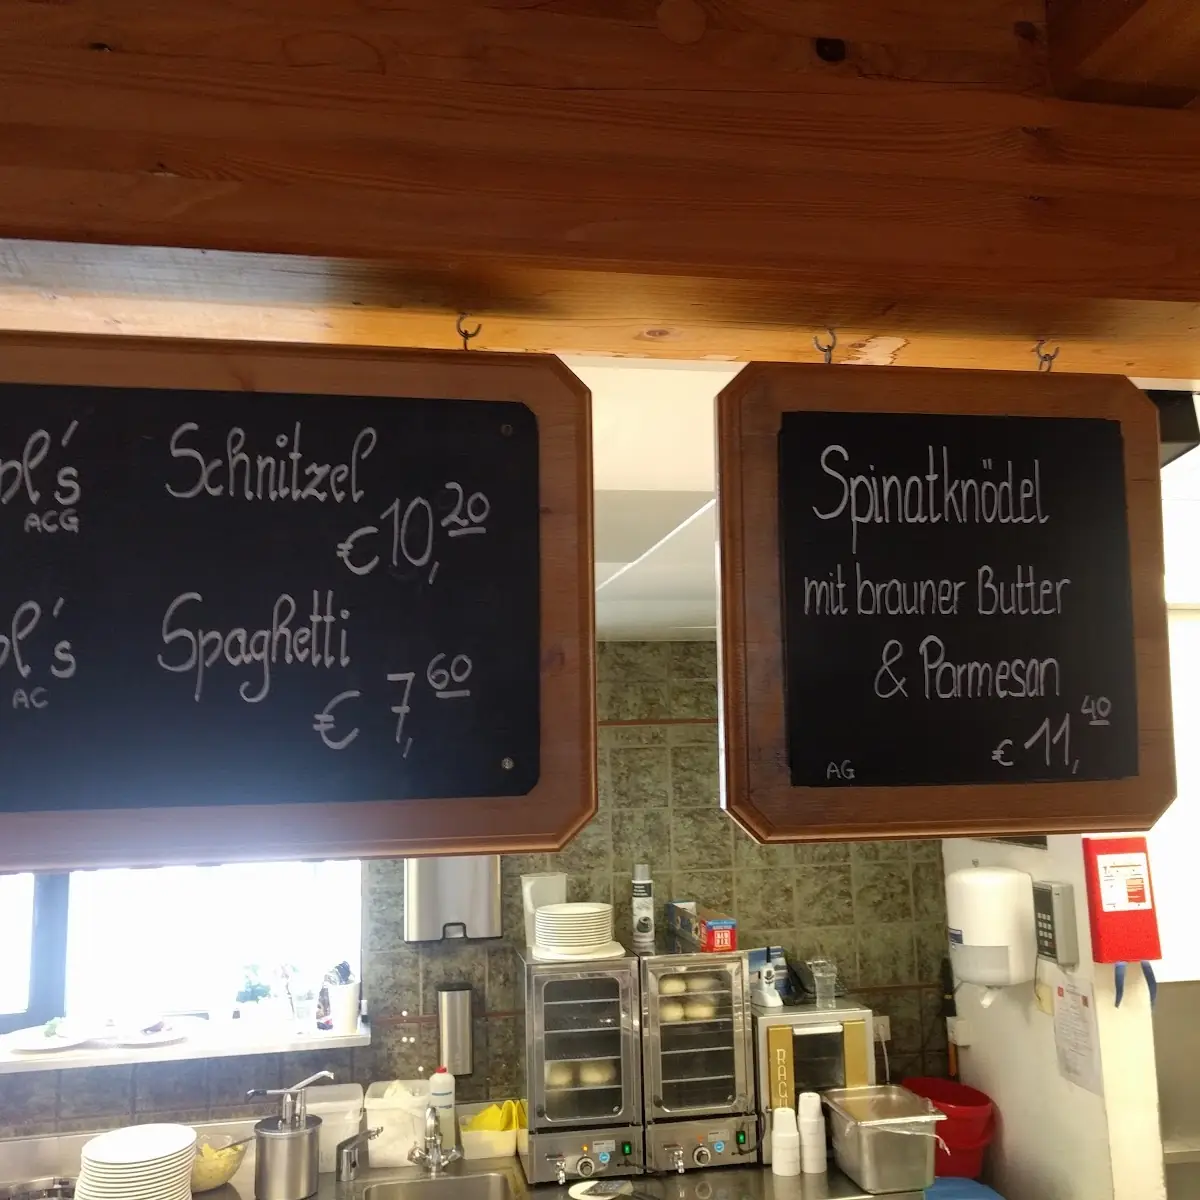 Schnitzel
ACG
€ 10,20
Spaghetti
AC
€ 7,60
Spinatknödel
mit brauner Butter
& Parmesan
€ 11,40
AG